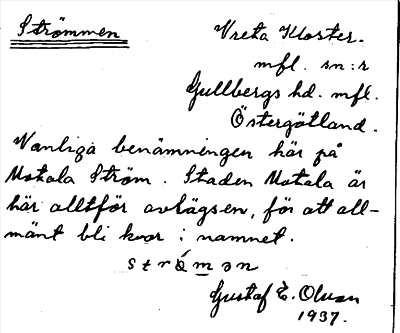 Strömmen
Vreta Kloster.
mfl. sn:r
Gullbergs hd. mfl.
Östergötland.
Vanliga benämningen här på
Motala Ström. Staden Motala är
här alltför avlägsen, för att all-
mänt bli kvar i namnet.
Gustaf E. Olsson
1937.